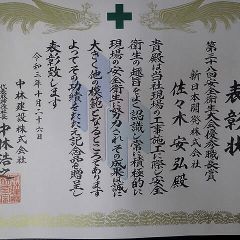 表彰状
第二十八回安全衛生大会優秀職長賞
新日本建設株式会社
佐々木安弘殿
貴殿は当社現場の工事施工に際し安全
衛生の趣旨をよく認識し常に積極的に
現場の安全衛生に努力されその成果は誠に
大きく他の模範となるところであります
よってその功績をたたえ記念品を贈呈し
表彰致します
令和三年十月二十六日
中林建設株式会社
代表取締役社長
中林浩之